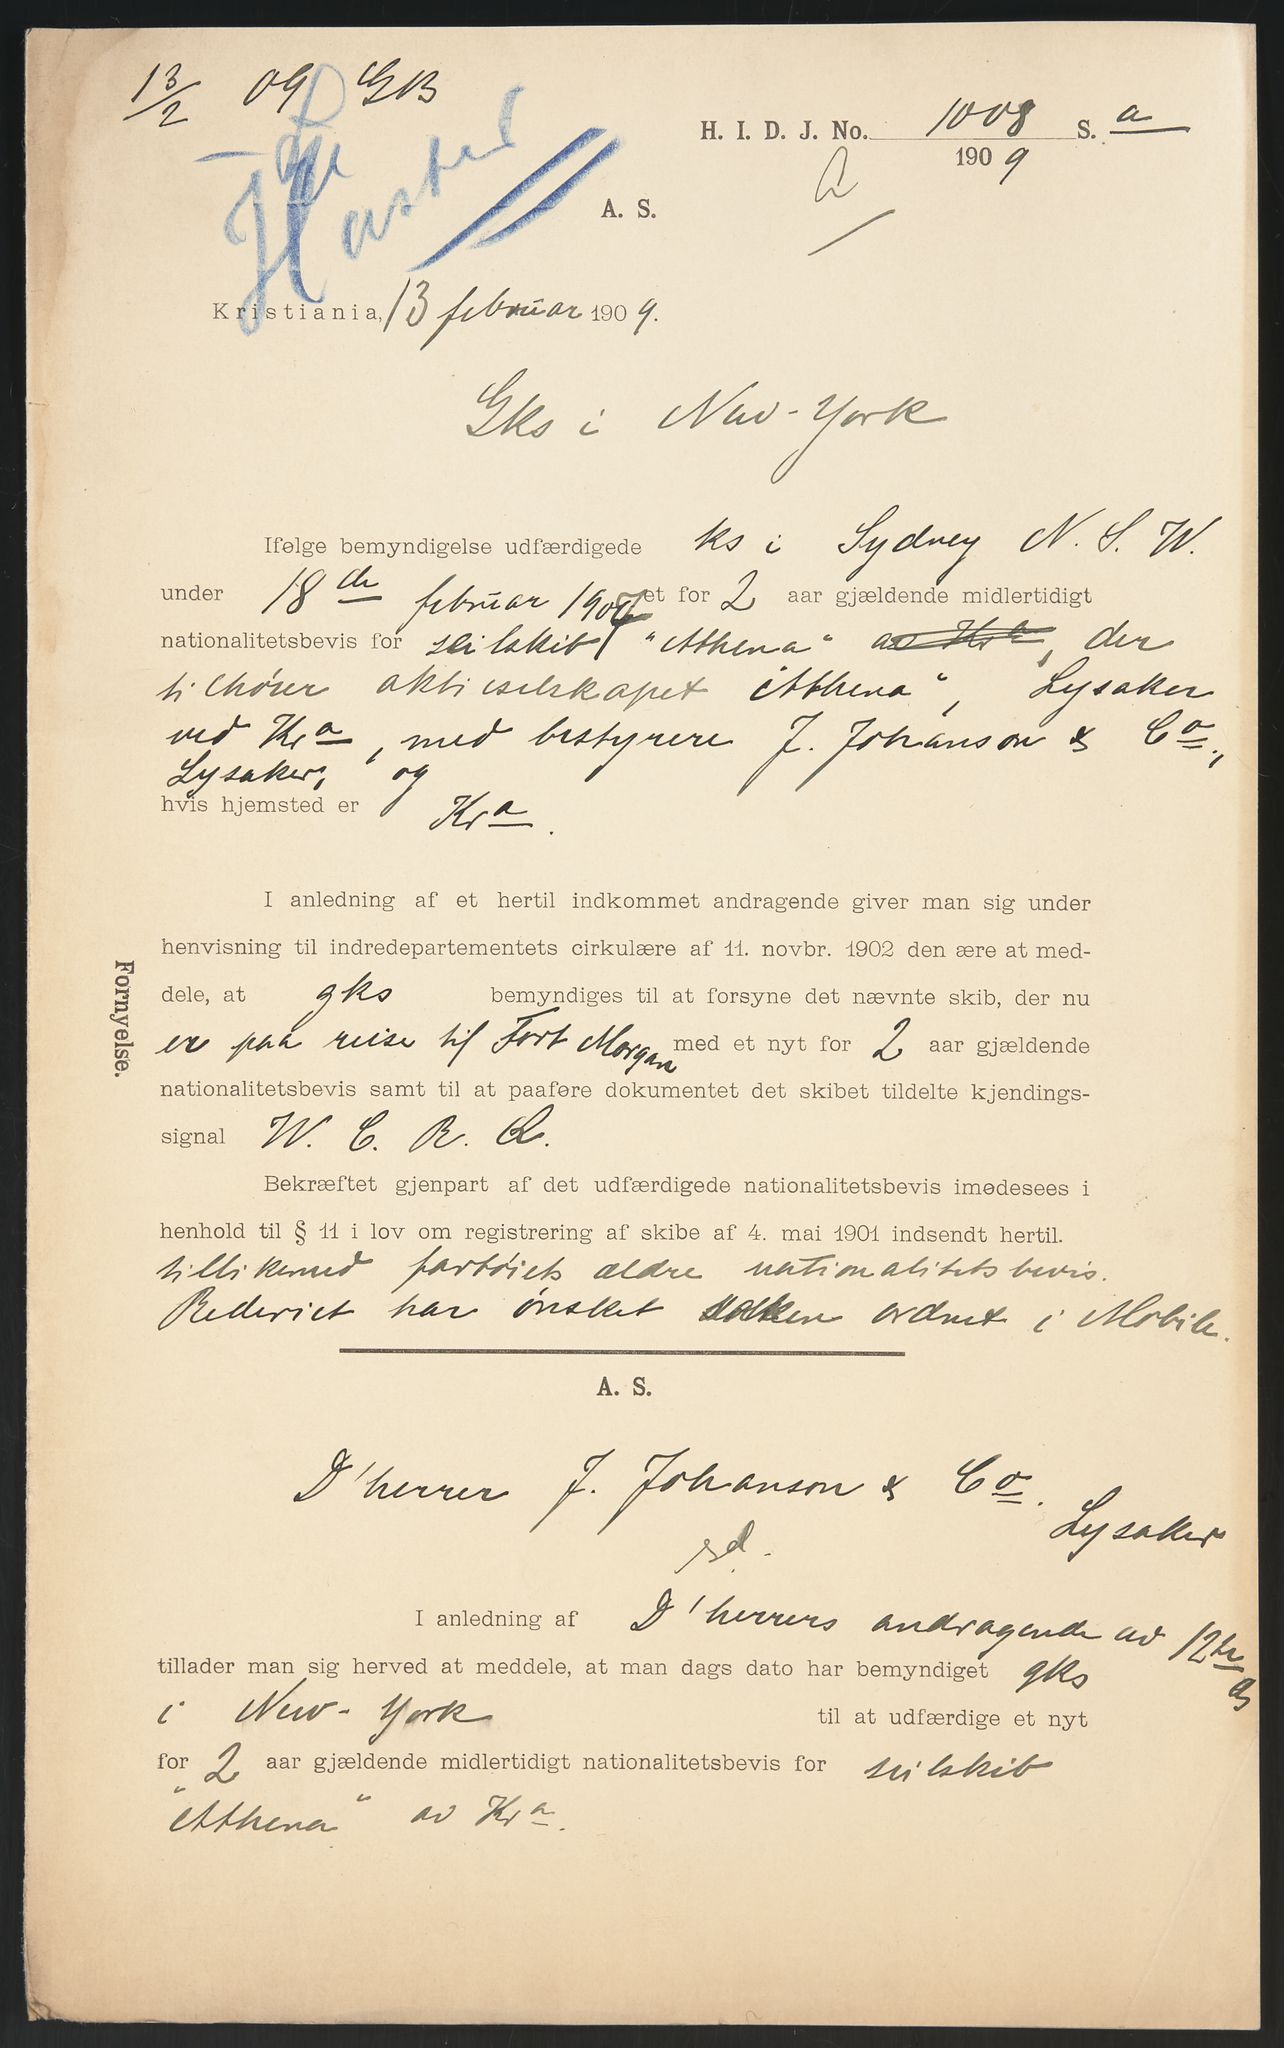 13/2 09 GB
Haster
H. I. D. J. No. 1008 S. a
1909
A. S.
Kristiania, 13 februar 1909.
Gks i New-York
Ifølge bemyndigelse udfærdigede ks i Sydney N. S. W.
under 18de februar 1907 et for 2 aar gjældende midlertidigt
nationalitetsbevis for seilskib "Athena" av Kra, der
tilhører aktieselskapet "Athena", Lysaker
ved Kra, med bestyrere J. Johanson & Co.,
Lysaker, og
hvis hjemsted er Kra.
I anledning af et hertil indkommet andragende giver man sig under
henvisning til indredepartementets cirkulære af 11. novbr. 1902 den ære at med-
dele, at gks bemyndiges til at forsyne det nævnte skib, der nu
er paa reise til Fort Morgan med et nyt for 2 aar gjældende
nationalitetsbevis samt til at paaføre dokumentet det skibet tildelte kjendings-
signal W. C. R. Q.
Fornyelse.
Bekræftet gjenpart af det udfærdigede nationalitetsbevis imødesees i
henhold til § 11 i lov om registrering af skibe af 4. mai 1901 indsendt hertil.
tillikemed fartøiets ældre nationalitetsbevis.
Rederiet har ønsket saken ordnet i Mobile.
A. S.
D'herrer J. Johanson & Co.
Lysaker
I anledning af D'herrers andragende av 12te ds
tillader man sig herved at meddele, at man dags dato har bemyndiget gks
i New-York til at udfærdige et nyt
for 2 aar gjældende midlertidigt nationalitetsbevis for seilskib
"Athena" av Kra.